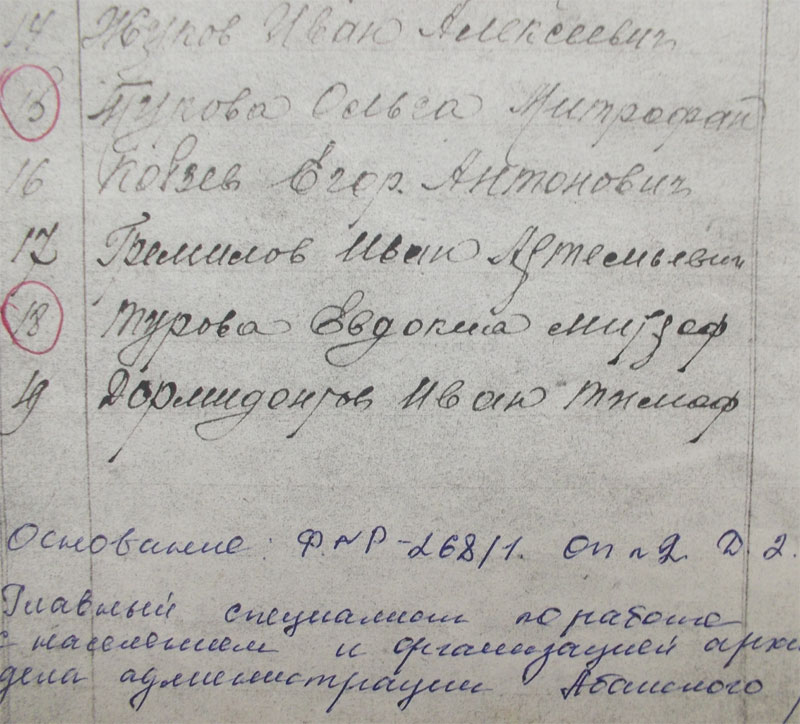 14 Жуков Иван Алексеевич
15 Турова Ольга Митрофан
16 Князев Егор. Антонович
17 Гремилов Иван Артемьевич
18 Турова Евдокиа Митроф
19 Дормидонтов Иван Тимоф
Основание: Ф.№Р-268/1. Оп №2. Д. 2.
Главный специалист по работе
с населением и организацией архи
дела администрации Абанского